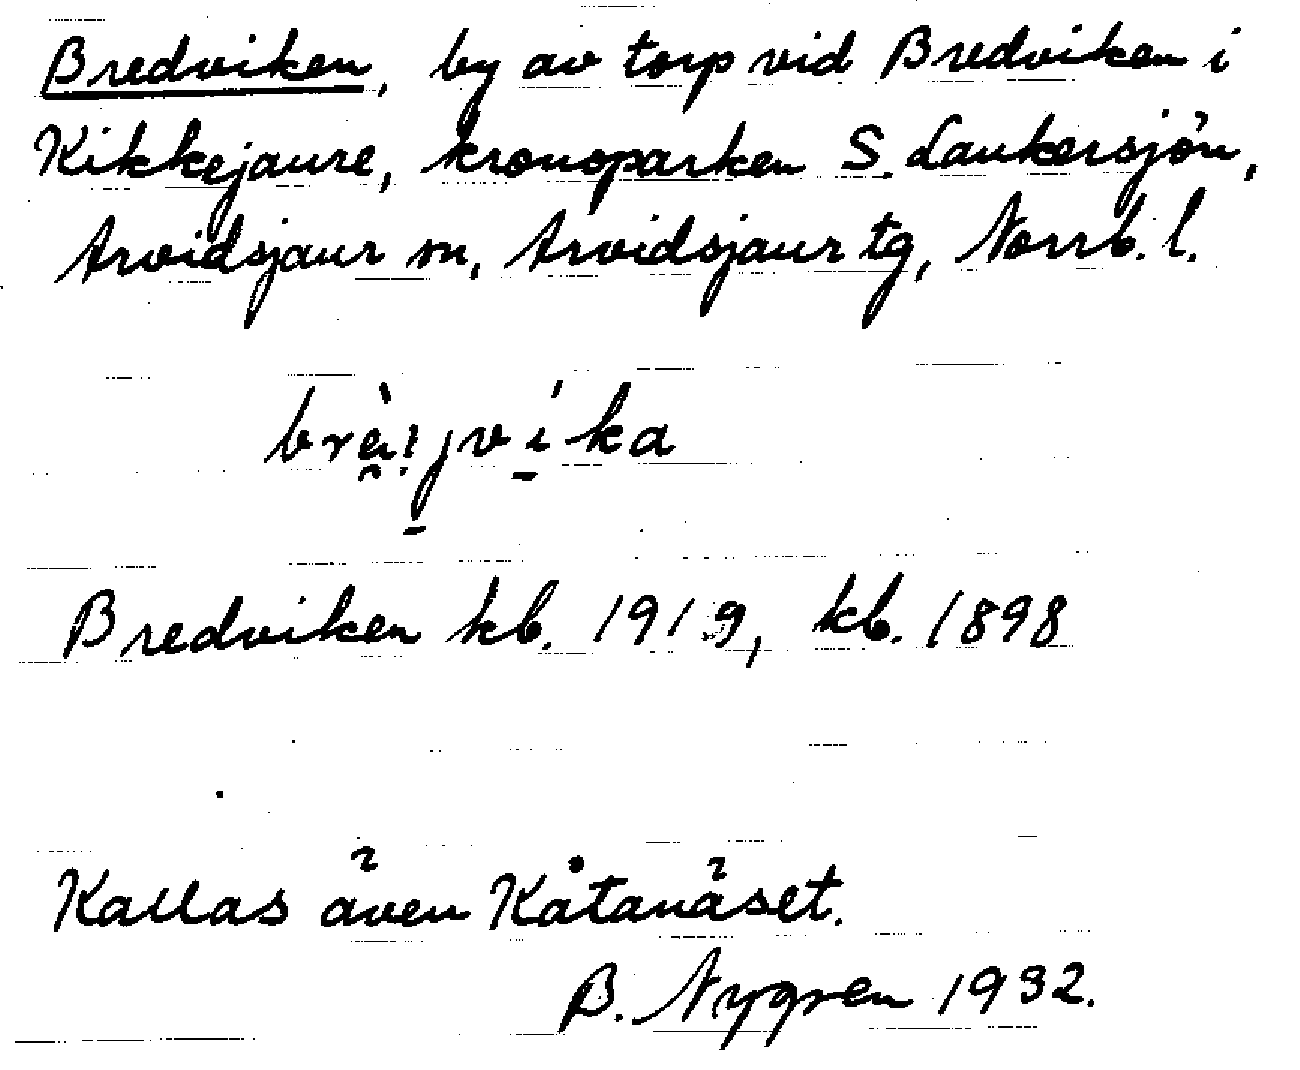 Bredviken, by av torp vid Bredviken i
Kikkejaure, kronoparken S. Laukersjön,
Arvidsjaur sn, Arvidsjaur tg, Norrb. l.
Bredviken kb. 1919, kb. 1898
Kallas även Kåtanäset.
B. Nygren 1932.